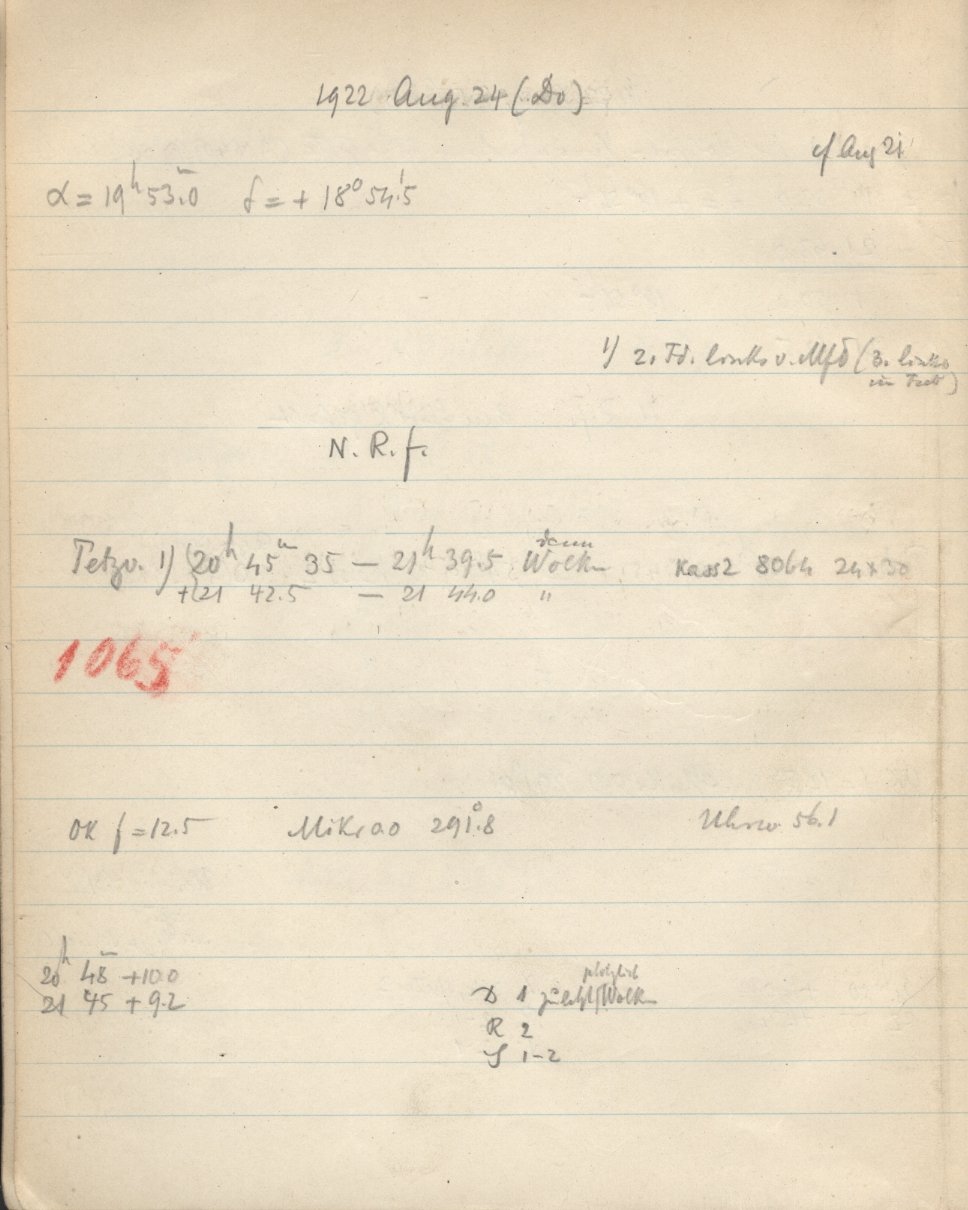 1922 Aug. 24 (Do)
cf Aug 21
α = 19ʰ 53ᵐ.0 δ = + 18° 54'.5
1) 2. Fd. links v. Mfd (3. links
im Feld)
N. R. f.
Petzv. 1) (20ʰ 45ᵐ 35 — 21ʰ 39.5 dann Wolken Kass2 8064 24×30
+(21 42.5 — 21 44.0 "
1065
OK f = 12.5 Mikrao 291°.8 Uhrw. 56.1
20ʰ 48ᵐ +10.0
21 45 +9.2
D 1 zuletzt plötzlich Wolken
R 2
S 1-2